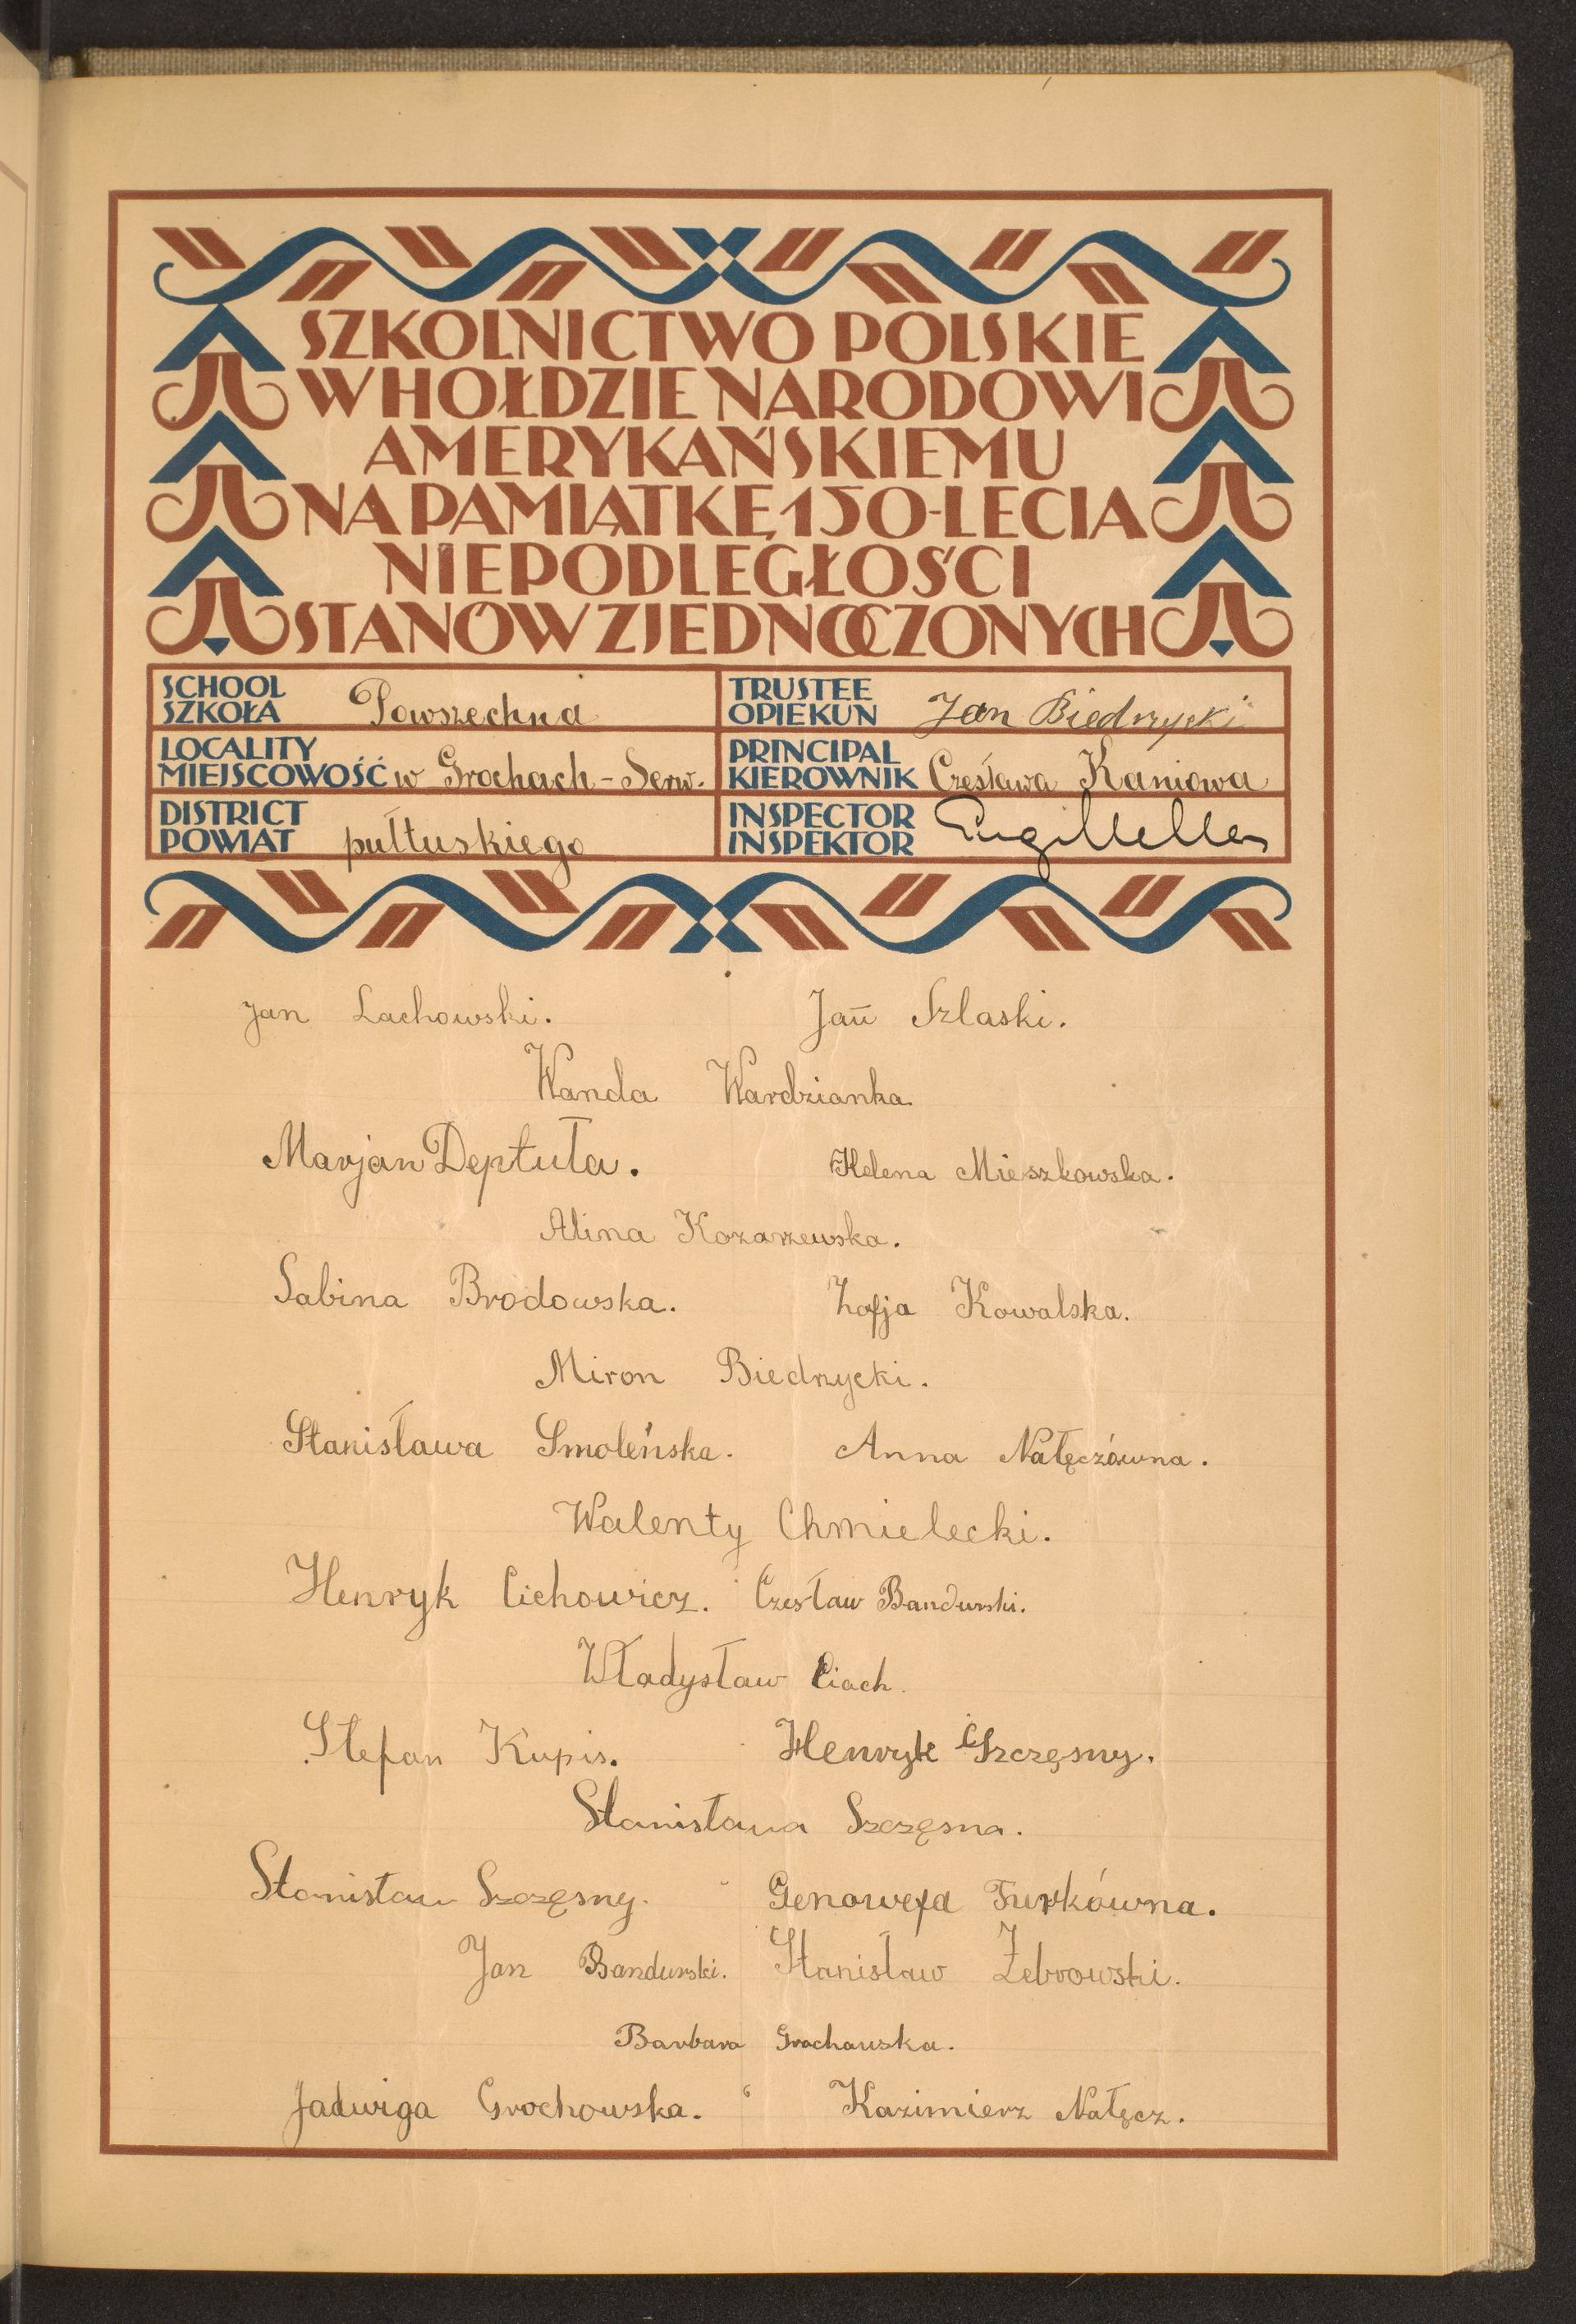 SZKOLNICTWO POLSKIE
W HOŁDZIE NARODOWI
AMERYKAŃSKIEMU
NA PAMIĄTKĘ 150-LECIA
NIEPODLEGŁOŚCI
STANÓW ZJEDNOCZONYCH
SCHOOL
SZKOŁA Powszechna
TRUSTEE
OPIEKUN Jan Biedrzycki
LOCALITY
MIEJSCOWOŚĆ w Grochach-Serw.
PRINCIPAL
KIEROWNIK Czesława Kaniowa
DISTRICT
POWIAT pułtuskiego
INSPECTOR
INSPEKTOR
Jan Lachowski. Jan Szlaski.
Wanda Wardzianka
Marjan Deptuła. Helena Mieszkowska.
Alina Kozarzewska.
Sabina Brodowska. Zofja Kowalska.
Miron Biedrzycki.
Stanisława Smoleńska. Anna Nałęczówna.
Walenty Chmielecki.
Henryk Cichowicz. Czesław Bandurski.
Władysław Ciach.
Stefan Kupis. Henryk Szczęsny.
Stanisława Szczęsna.
Stanisław Szczęsny. Genowefa Furkówna.
Jan Bandurski. Stanisław Żebrowski.
Barbara Grochowska.
Jadwiga Grochowska. Kazimierz Nałęcz.